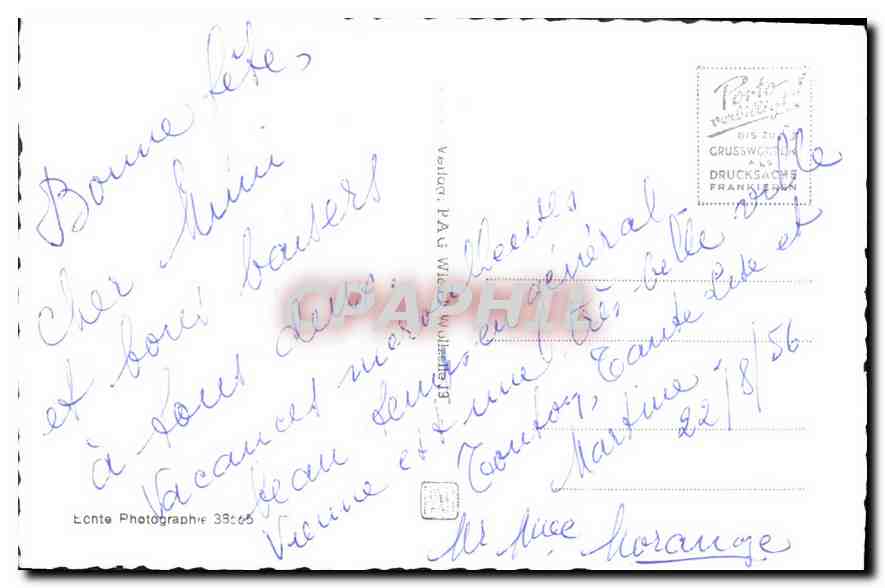 Bonne fête,
cher Mimi
et bons baisers
à tous deux.
Vacances merveilleuses
beau temps en général
Vienne est une très belle ville
Tonton, Tante Lete et
Martine
22/8/56
Mr Mme Morange
Porto
verbilligt!
BIS ZU 5
GRUSSWORTEN
ALS
DRUCKSACHE
FRANKIEREN
Verlag, P.A.G Wien
Echte Photographie
CPAPHIL